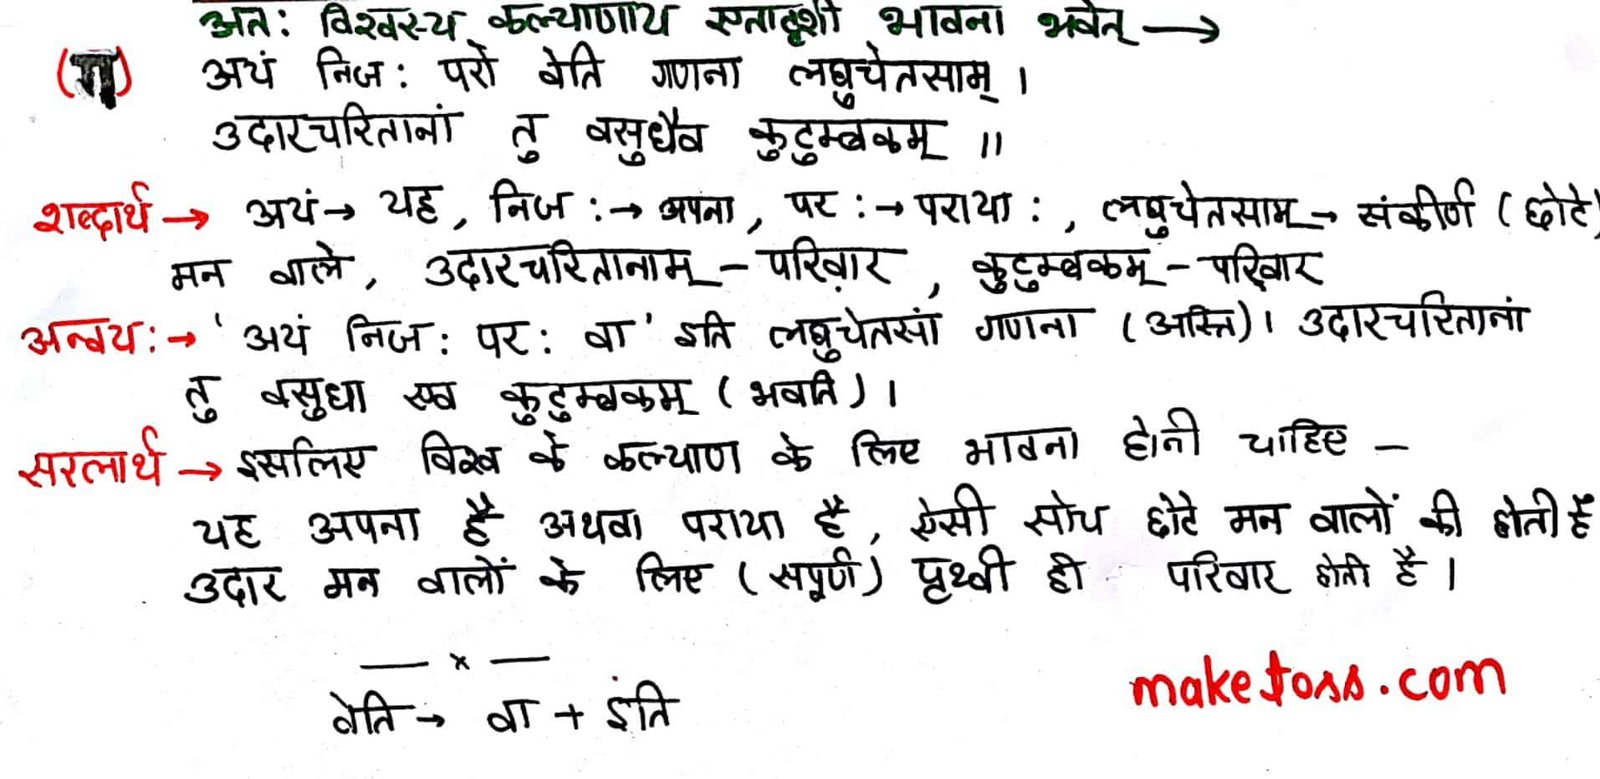 अतः विश्वस्य कल्याणाय एतादृशी भावना भवेत् →
(ग) अयं निजः परो वेति गणना लघुचेतसाम् ।
उदारचरितानां तु वसुधैव कुटुम्बकम् ॥
शब्दार्थ → अयं → यह , निजः → अपना , परः → पराया : , लघुचेतसाम् → संकीर्ण ( छोटे )
मन वाले , उदारचरितानाम् - परिवार , कुटुम्बकम् - परिवार
अन्वयः → ' अयं निजः परः वा ' इति लघुचेतसां गणना ( अस्ति ) । उदारचरितानां
तु वसुधा एव कुटुम्बकम् ( भवति ) ।
सरलार्थ → इसलिए विश्व के कल्याण के लिए भावना होनी चाहिए –
यह अपना है अथवा पराया है , ऐसी सोच छोटे मन वालों की होती है
उदार मन वालों के लिए ( सपूर्ण ) पृथ्वी ही परिवार होती है ।
— × —
वेति → वा + इति
maketoss.com